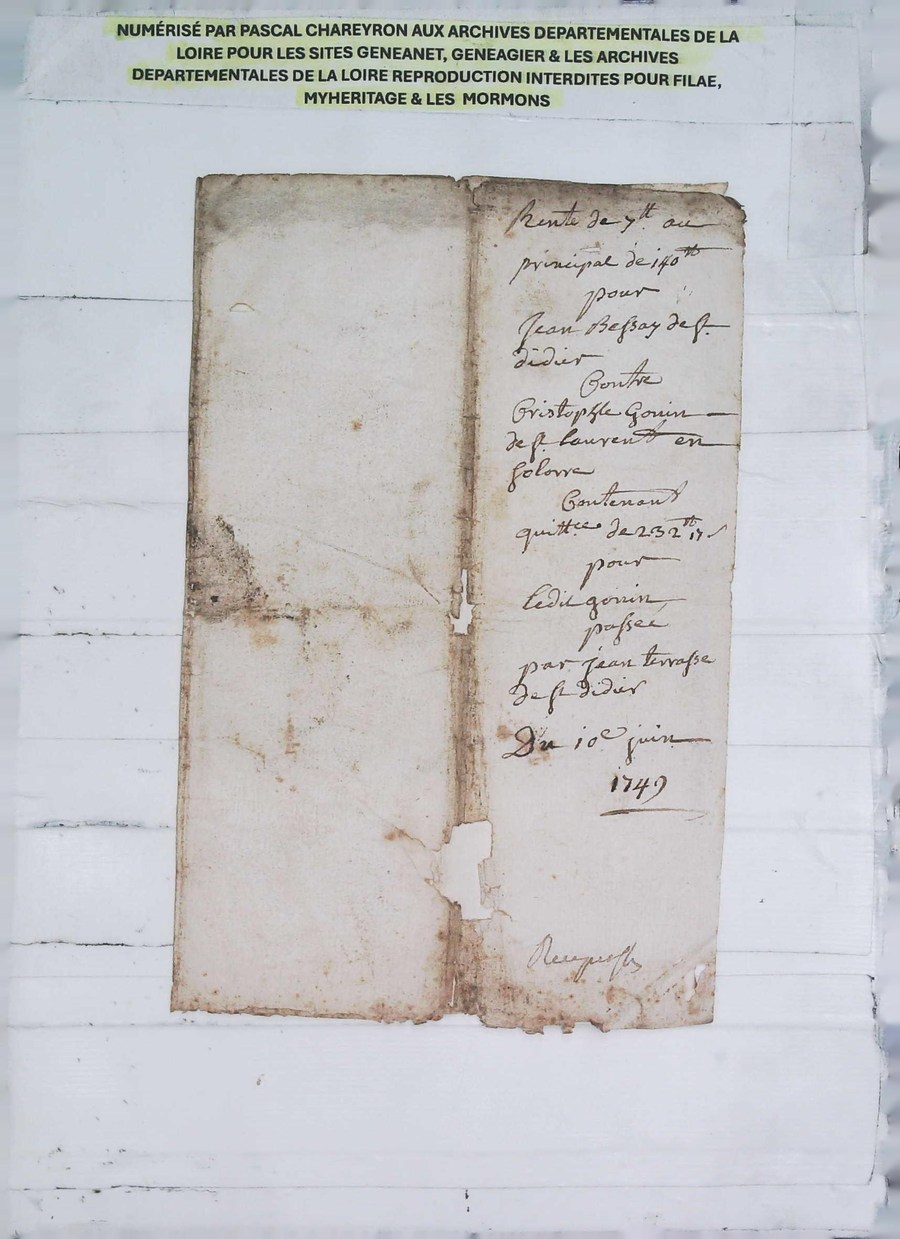 NUMÉRISÉ PAR PASCAL CHAREYRON AUX ARCHIVES DEPARTEMENTALES DE LA
LOIRE POUR LES SITES GENEANET, GENEAGIER & LES ARCHIVES
DEPARTEMENTALES DE LA LOIRE REPRODUCTION INTERDITES POUR FILAE,
MYHERITAGE & LES MORMONS
Rente de 7tt au
principal de 140tt
pour
Jean Bessay de st
didier
Contre
Cristophle Gonin
de st laurent en
Solorre
Contenant
quittce de 232tt 17s
pour
ledit gonin
passee
par jean terrasse
de st didier
Du 10e juin
1749